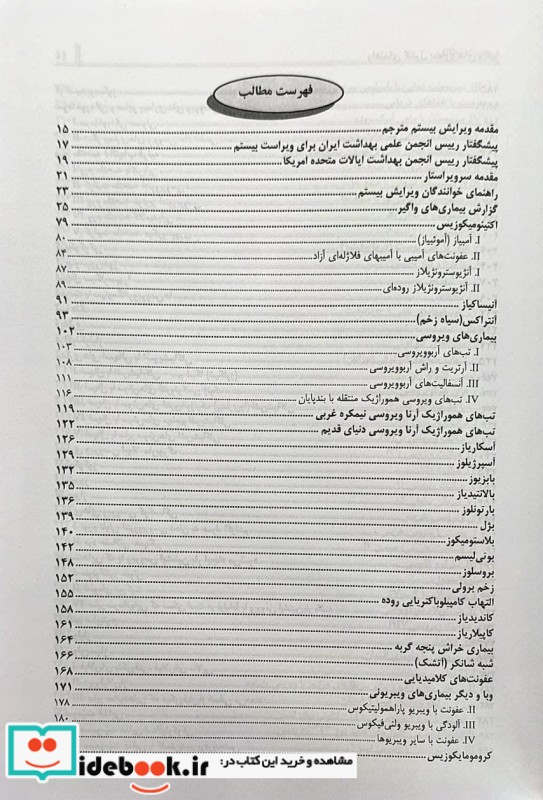 فهرست مطالب
مقدمه ویرایش بیستم مترجم ۱۵
پیشگفتار رییس انجمن علمی بهداشت ایران برای ویراست بیستم ۱۷
پیشگفتار رییس انجمن بهداشت ایالات متحده امریکا ۱۹
مقدمه سرویراستار ۲۱
راهنمای خوانندگان ویرایش بیستم ۲۳
گزارش بیماری‌های واگیر ۲۵
اکتینومیکوزیس ۷۹
I. آمیباز (آموئبیاز) ۸۰
II. عفونت‌های آمیبی با آمیبهای فلاژله‌ای آزاد ۸۴
I. آنژیوسترونژیلاز ۸۷
II. آنژیوسترونژیلاز روده‌ای ۸۹
آنیساکیاز ۹۱
آنتراکس (سیاه زخم) ۹۳
بیماری‌های ویروسی ۱۰۲
I. تب‌های آربوویروسی ۱۰۳
II. آرتریت و راش آربوویروسی ۱۰۸
III. آنسفالیت‌های آربوویروسی ۱۱۱
IV. تب‌های ویروسی هموراژیک منتقله با بندپایان ۱۱۶
تب‌های هموراژیک آرنا ویروسی نیمکره غربی ۱۱۹
تب‌های هموراژیک آرنا ویروسی دنیای قدیم ۱۲۲
آسکاریاز ۱۲۶
آسپرژیلوز ۱۲۹
بابزیوز ۱۳۲
بالانتیدیاز ۱۳۵
بارتونلوز ۱۳۶
بژل ۱۳۹
بلاستومیکوز ۱۴۰
بوتی‌لیسم ۱۴۲
بروسلوز ۱۴۸
زخم برولی ۱۵۲
التهاب کامپیلوباکتریایی روده ۱۵۵
کاندیدیاز ۱۵۸
کاپیلاریاز ۱۶۱
بیماری خراش پنجه گربه ۱۶۴
شبه شانکر (آتشک) ۱۶۶
عفونت‌های کلامیدیایی ۱۶۸
وبا و دیگر بیماری‌های ویبریونی ۱۷۱
II. عفونت با ویبریو پاراهمولیتیکوس ۱۷۸
III. آلودگی با ویبریو ولنی‌فیکوس ۱۸۰
IV. عفونت با سایر ویبریوها
کرومومایکوزیس
مشاهده و خرید این کتاب در:
idebook.ir